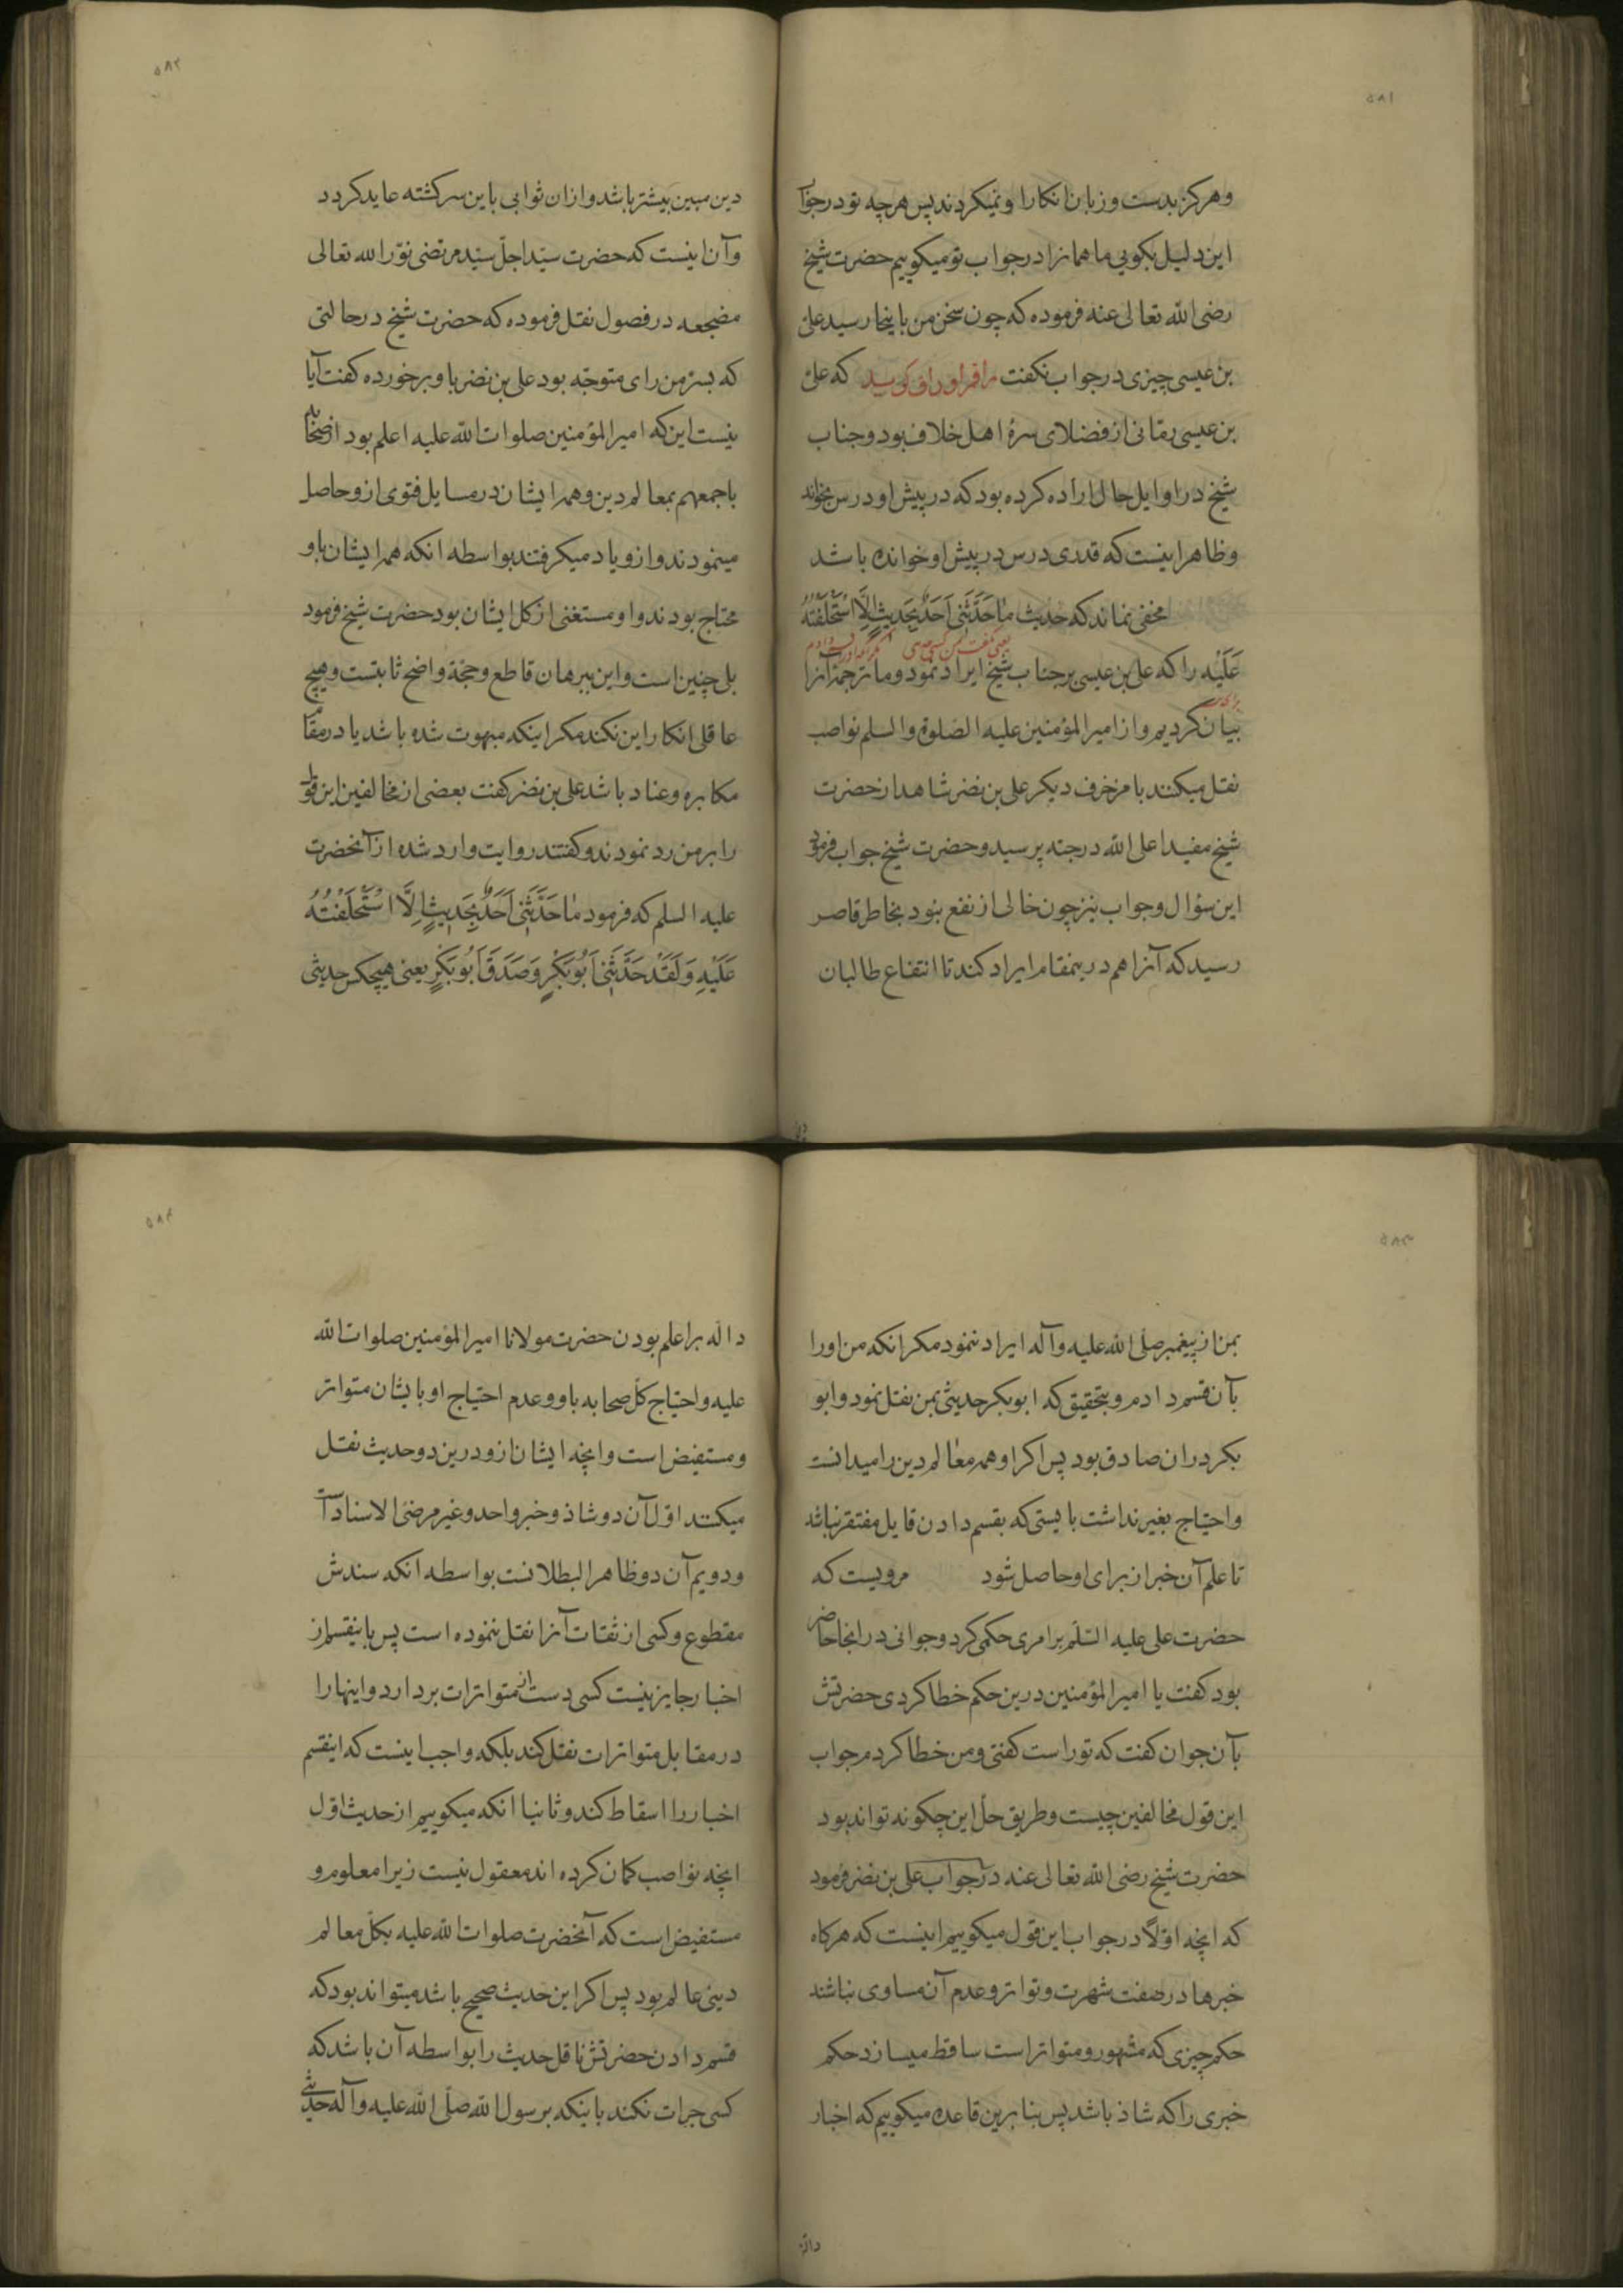 ۵۸۱
وهرکز بدست وزبان انکار او نمیکردند پس هرچه تو در جواب
این دلیل بکویی ما همانرا در جواب تو میکوییم حضرت شیخ
رضی الله تعالی عنه فرموده که چون سخن من باینجا رسید علی
بن عیسی چیزی در جواب نکفت راقم اوراق کوید که علی
بن عیسی رمانی از فضلای سرهٔ اهل خلاف بود و جناب
شیخ در اوایل حال اراده کرده بود که در پیش او درس بخواند
وظاهر اینست که قدری درس در پیش او خوانده باشد
مخفی نماند که حدیث مٰا حَدَّثَنی اَحَدٌ بِحَدیثٍ اِلَّا اسْتَحْلَفْتُهُ
یعنی نکفت بمن کسی حدیثی مکر آنکه او را قسم دادم
عَلَیْهِ را که علی بن عیسی بر جناب شیخ ایراد نمود وما ترجمهٔ آنرا
برای
بیان کردیم واز امیر المؤمنین علیه الصلوة والسلم نواصب
نقل میکنند با مزخرف دیکر علی بن نضر شاهد از حضرت
شیخ مفید اعلی الله درجته پرسید و حضرت شیخ جواب فرمود
این سؤال وجواب نیز چون خالی از نفع بنود بخاطر قاصر
رسید که آنرا هم درینمقام ایراد کند تا انتفاع طالبان
۵۸۲
دین مبین بیشتر باشد وازان ثوابی باین سرکشته عاید کردد
وآن اینست که حضرت سیّد اجلّ سیّد مرتضی نوّر الله تعالی
مضجعه در فصول نقل فرموده که حضرت شیخ در حالتی
که بسرّ من رای متوجّه بود علی بن نضر باو برخورده کفت آیا
نیست این که امیر المؤمنین صلوات الله علیه اعلم بود از صحابه
باجمعهم بمعالم دین وهمه ایشان در مسایل فتوی ازو حاصل
مینمودند وازو یاد میکرفتند بواسطه انکه همه ایشان باو
محتاج بودند واو مستغنی از کل ایشان بود حضرت شیخ فرمود
بلی چنین است واین برهان قاطع وحجة واضح ثابتست وهیچ
عاقلی انکار این نکند مکر اینکه مبهوت شده باشد یا در مقام
مکابره وعناد باشد علی بن نضر کفت بعضی از مخالفین این قول
را بر من رد نمودند وکفتند روایت وارد شده از آنحضرت
علیه السلم که فرمود مٰا حَدَّثَنی اَحَدٌ بِحَدیثٍ اِلَّا اسْتَحْلَفْتُهُ
عَلَیْهِ وَلَقَدْ حَدَّثَنی اَبُو بَکْرٍ وَصَدَقَ اَبُو بَکْرٍ یعنی هیچکس حدیثی
۵۸۳
بمن از پیغمبر صلّی الله علیه وآله ایراد ننمود مکر انکه من اورا
بآن قسم دادم وبتحقیق که ابو بکر حدیثی بمن نقل نمود وابو
بکر دران صادق بود پس اکر او همه معٰالم دین را میدانست
واحتیاج بغیر نداشت بایستی که بقسم دادن قایل مفتقر نباشد
تا علم آن خبر از برای او حاصل شود مرویست که
حضرت علی علیه السّلم بر امری حکمی کرد وجوانی در انجا حاضر
بود کفت یا امیر المؤمنین درین حکم خطا کردی حضرتش
بآن جوان کفت که تو راست کفتی ومن خطا کردم جواب
این قول مخالفین چیست وطریق حلّ این چکونه تواند بود
حضرت شیخ رضی الله تعالی عنه در جواب علی بن نضر فرمود
که انچه اوّلاً در جواب این قول میکوییم اینست که هرکاه
خبرها در صفت شهرت وتواتر وعدم آن مساوی نباشند
حکم چیزی که مشهور ومتواتر است ساقط میسازد حکم
خبری را که شاذ باشد پس بنا برین قاعده میکوییم که اخبار
داله
۵۸۴
داله بر اعلم بودن حضرت مولانا امیر المؤمنین صلوات الله
علیه واحتیاج کلّ صحابه باو وعدم احتیاج او بایشان متواتر
ومستفیض است وانچه ایشان ازو درین دو حدیث نقل
میکنند اوّل آن دو شاذ وخبر واحد وغیر مرضیّ الاسناد است
ودویم آن دو ظاهر البطلانست بواسطه انکه سندش
مقطوع وکسی از ثقات آنرا نقل ننموده است پس باینقسم از
اخبار جایز نیست کسی دست از متواترات بردارد واینها را
در مقابل متواترات نقل کند بلکه واجب اینست که اینقسم
اخبار را اسقاط کند وثانیا انکه میکوییم از حدیث اوّل
انچه نواصب کمان کرده اند معقول نیست زیرا معلوم و
مستفیض است که آنحضرت صلوات الله علیه بکلّ معالم
دینی عالم بود پس اکر این حدیث صحیح باشد میتواند بود که
قسم دادن حضرتش ناقل حدیث را بواسطه آن باشد که
کسی جرات نکند باینکه بر رسول الله صلّی الله علیه وآله حدیثی